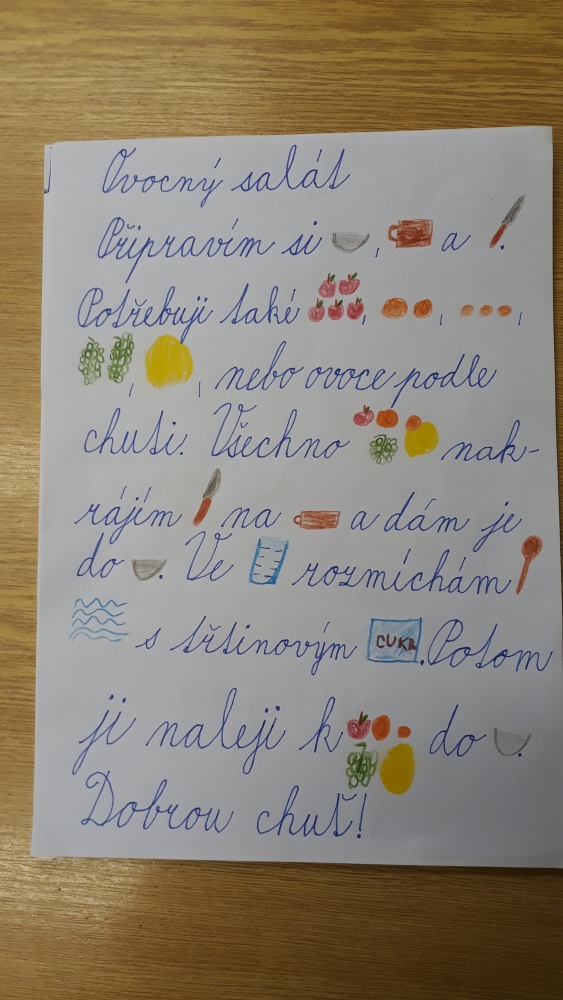 Ovocný salát
Připravím si , a .
Potřebuji také , , ,
, , nebo ovoce podle
chuti. Všechno nak-
rájím na a dám je
do . Ve rozmíchám
s třtinovým CUKR . Potom
ji naleji k do .
Dobrou chuť!